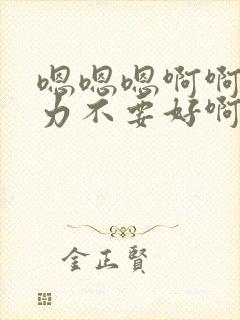 嗯嗯嗯啊啊
力不要好啊
金正賢